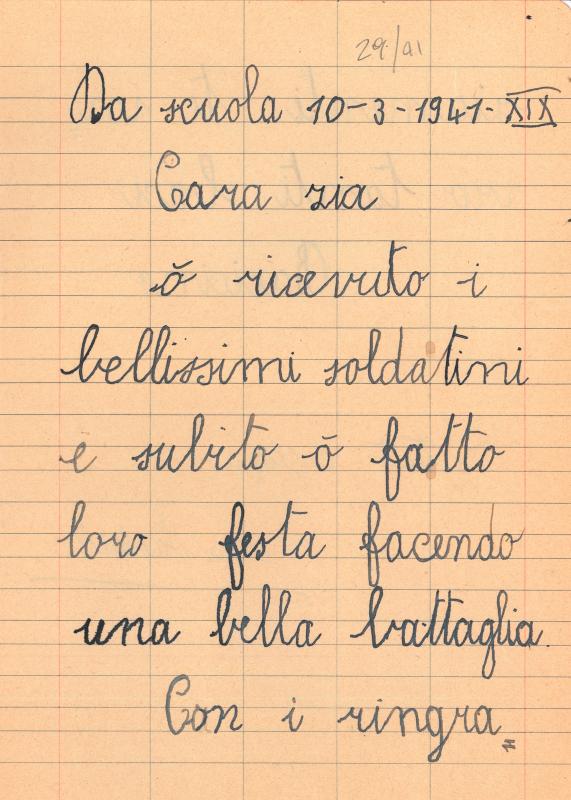 29/41
Da scuola 10-3-1941-XIX
Cara zia
ŏ ricevuto i
bellissimi soldatini
e subito ŏ fatto
loro festa facendo
una bella battaglia.
Con i ringra=